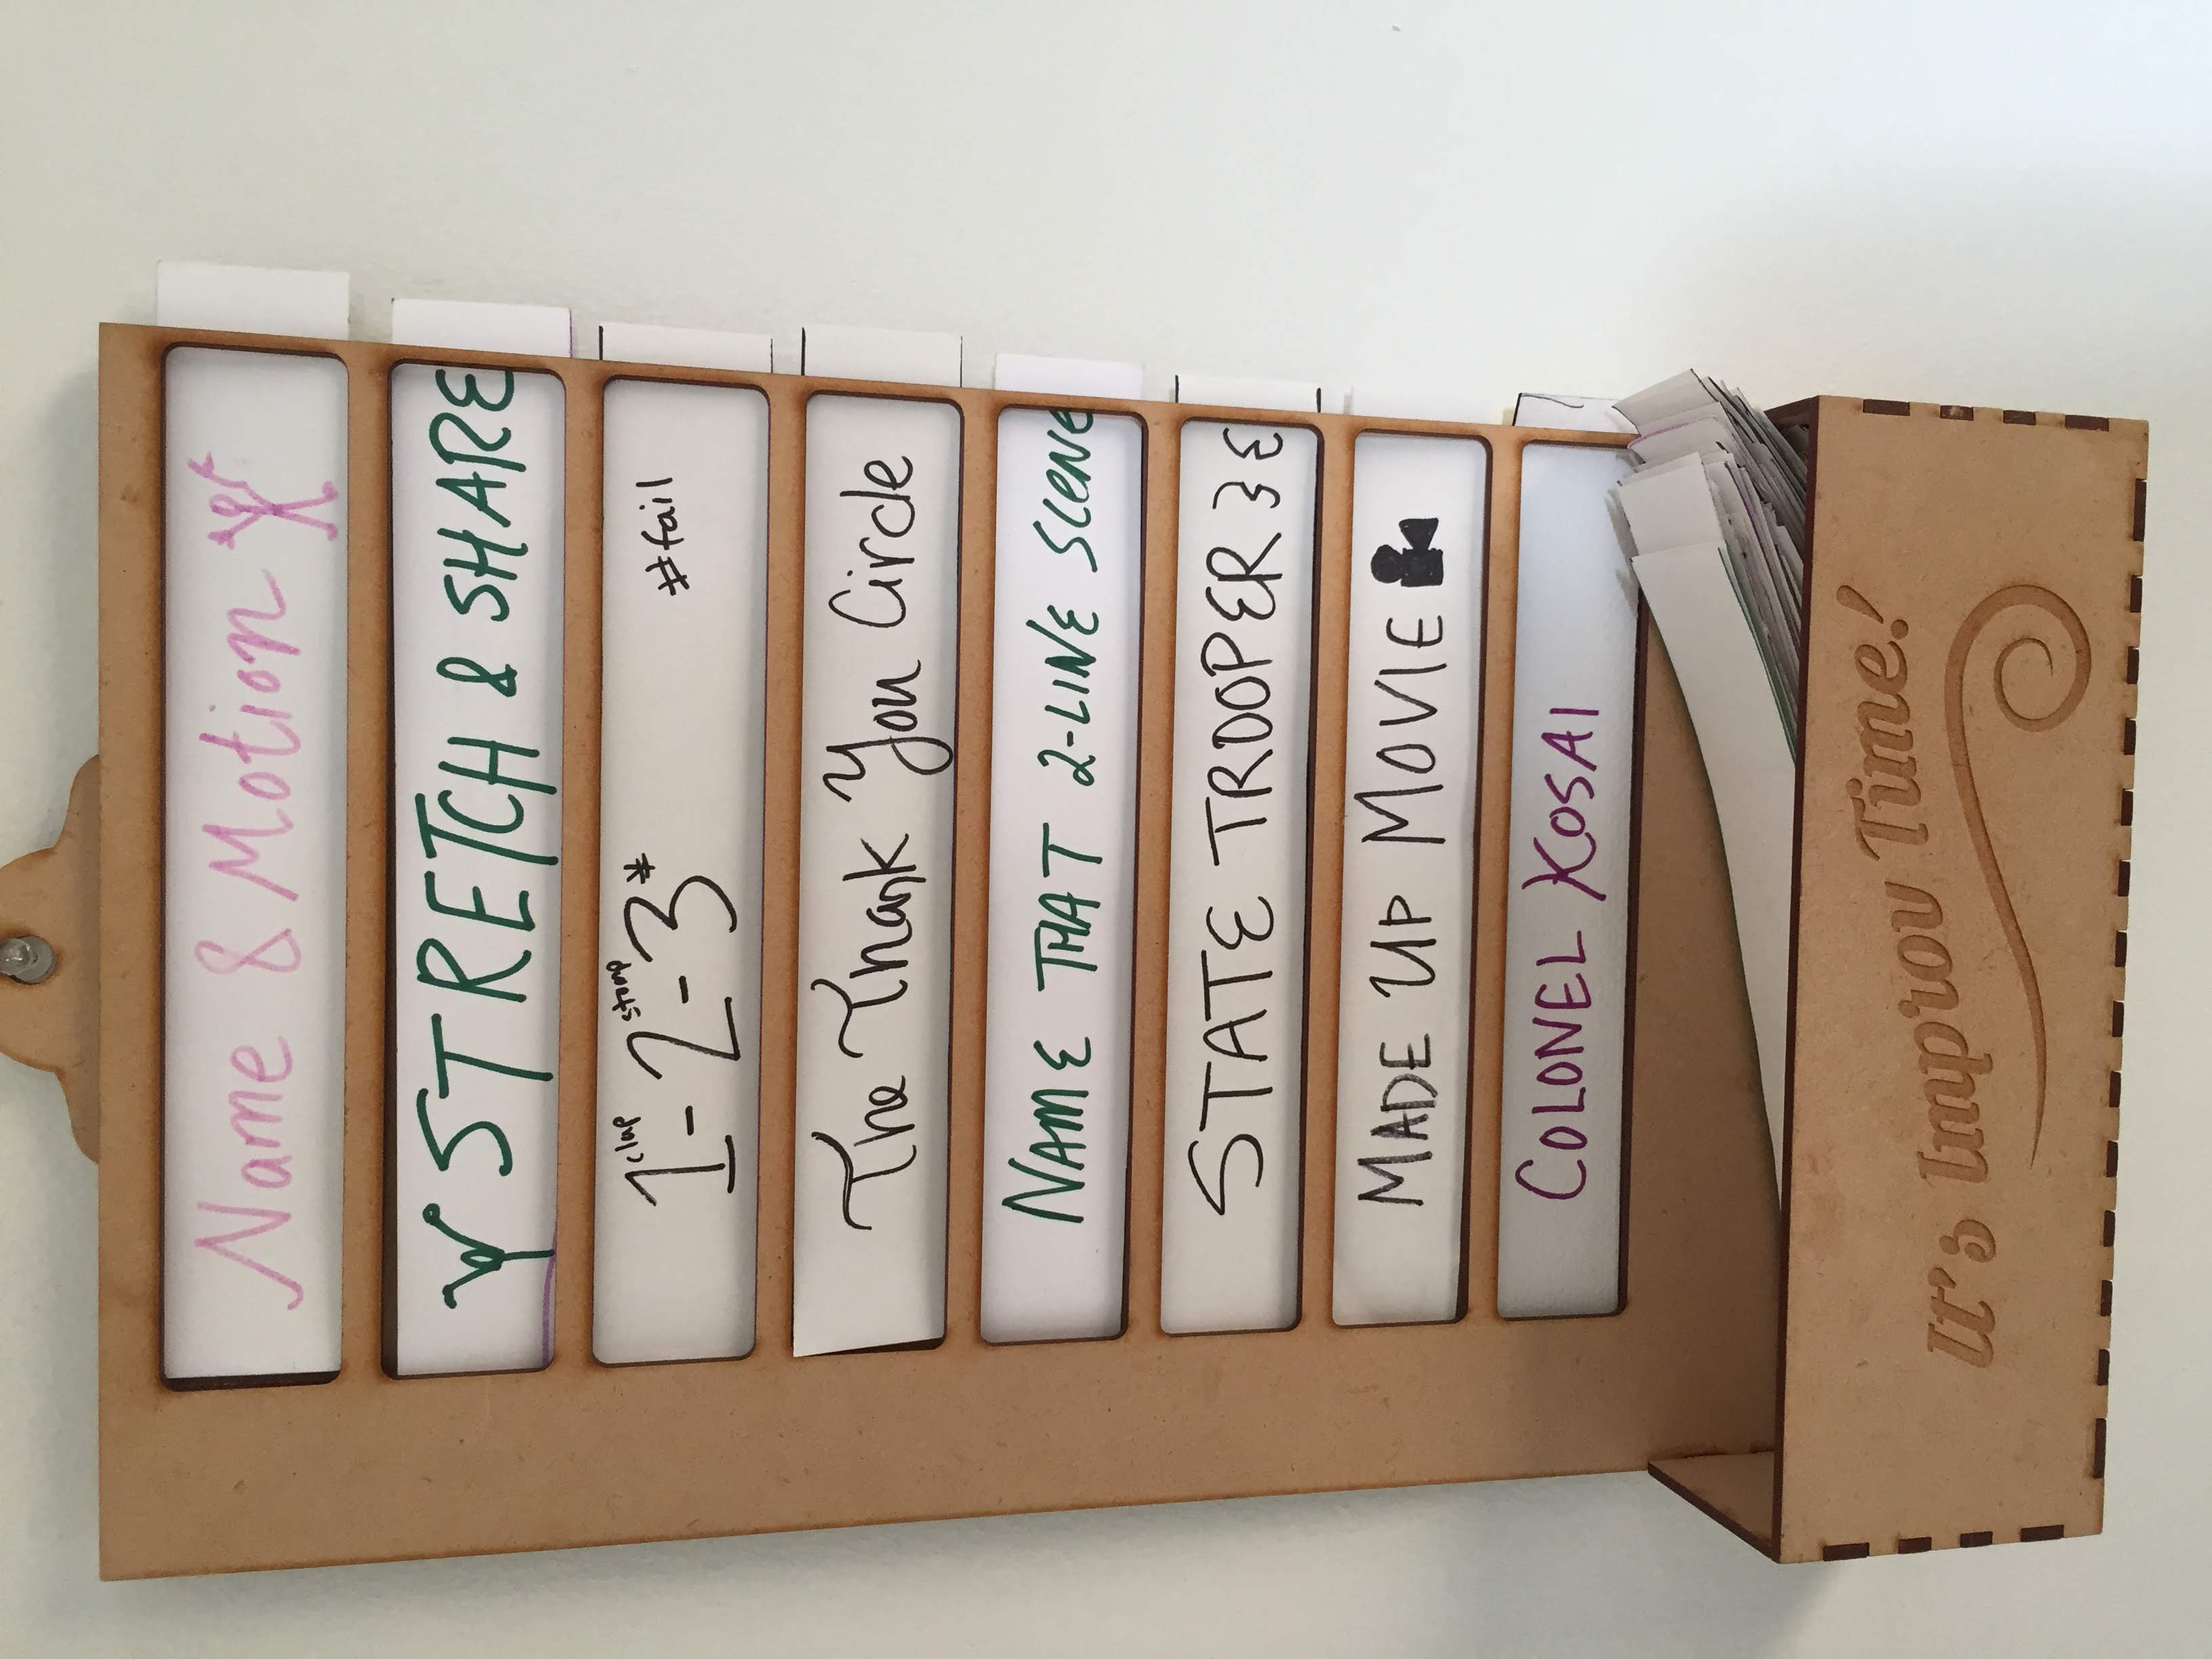 Name & Motion
STRETCH & SHARE
1clap-2stomp-3* #fail
The Thank You Circle
NAME THAT 2-LINE SCENE
STATE TROOPER
MADE UP MOVIE
COLONEL KOSAI
It's Improv Time!